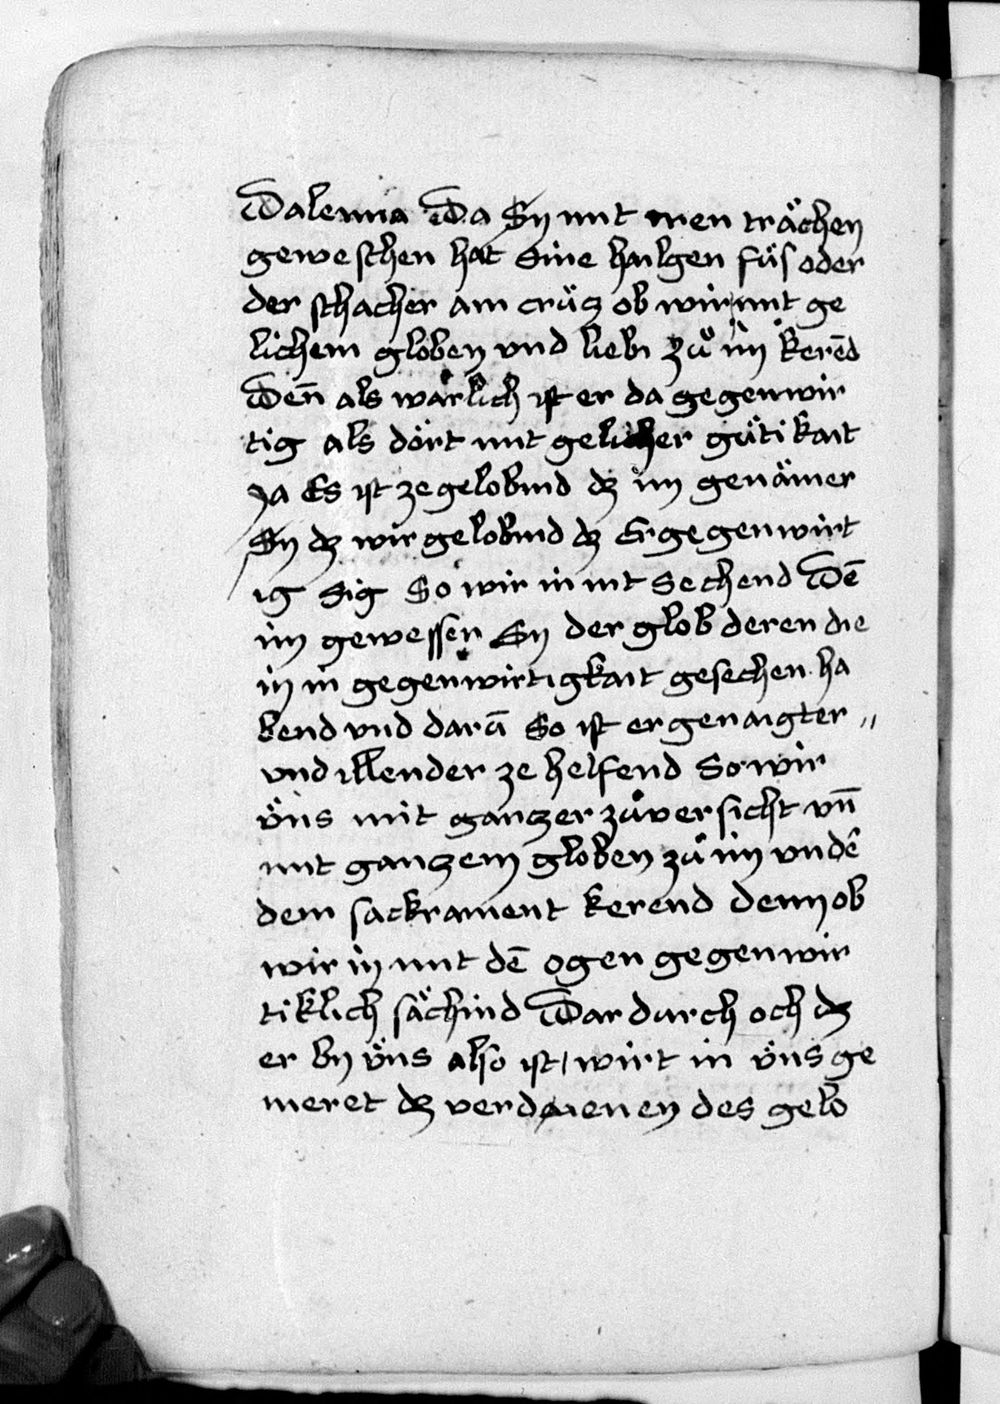 Dalenna Da Sy mit iren trächen
geweschen hat Sine hailgen füs oder
der schacher am crütz ob wir mit ge
lichem globen vnd liebi zů im kerēd
Den̄ als wärlich ist er da gegenwir
tig als dört mit gelicher gütikait
Ja Es ist zegelobind dz im genämer
Sy dz wir gelobind dz Er gegenwirt
ig Sig So wir in nit Sechend Dē
im gewessen Sy der glob deren die
in in gegenwirtigkait gesechen ha
bend vnd darū So ist er genaigter //
vnd illender ze helfend So wir
v̈ns mit gantzer zůversicht vn̄
mit ganzem globen zů im vndē
dem sackrament kerend denn ob
wir in mit dē ogen gegenwir
tiklich sächind Dar durch och dz
er by v̈ns also ist / wirt in v̈ns ge
meret dz verdienen des gelō